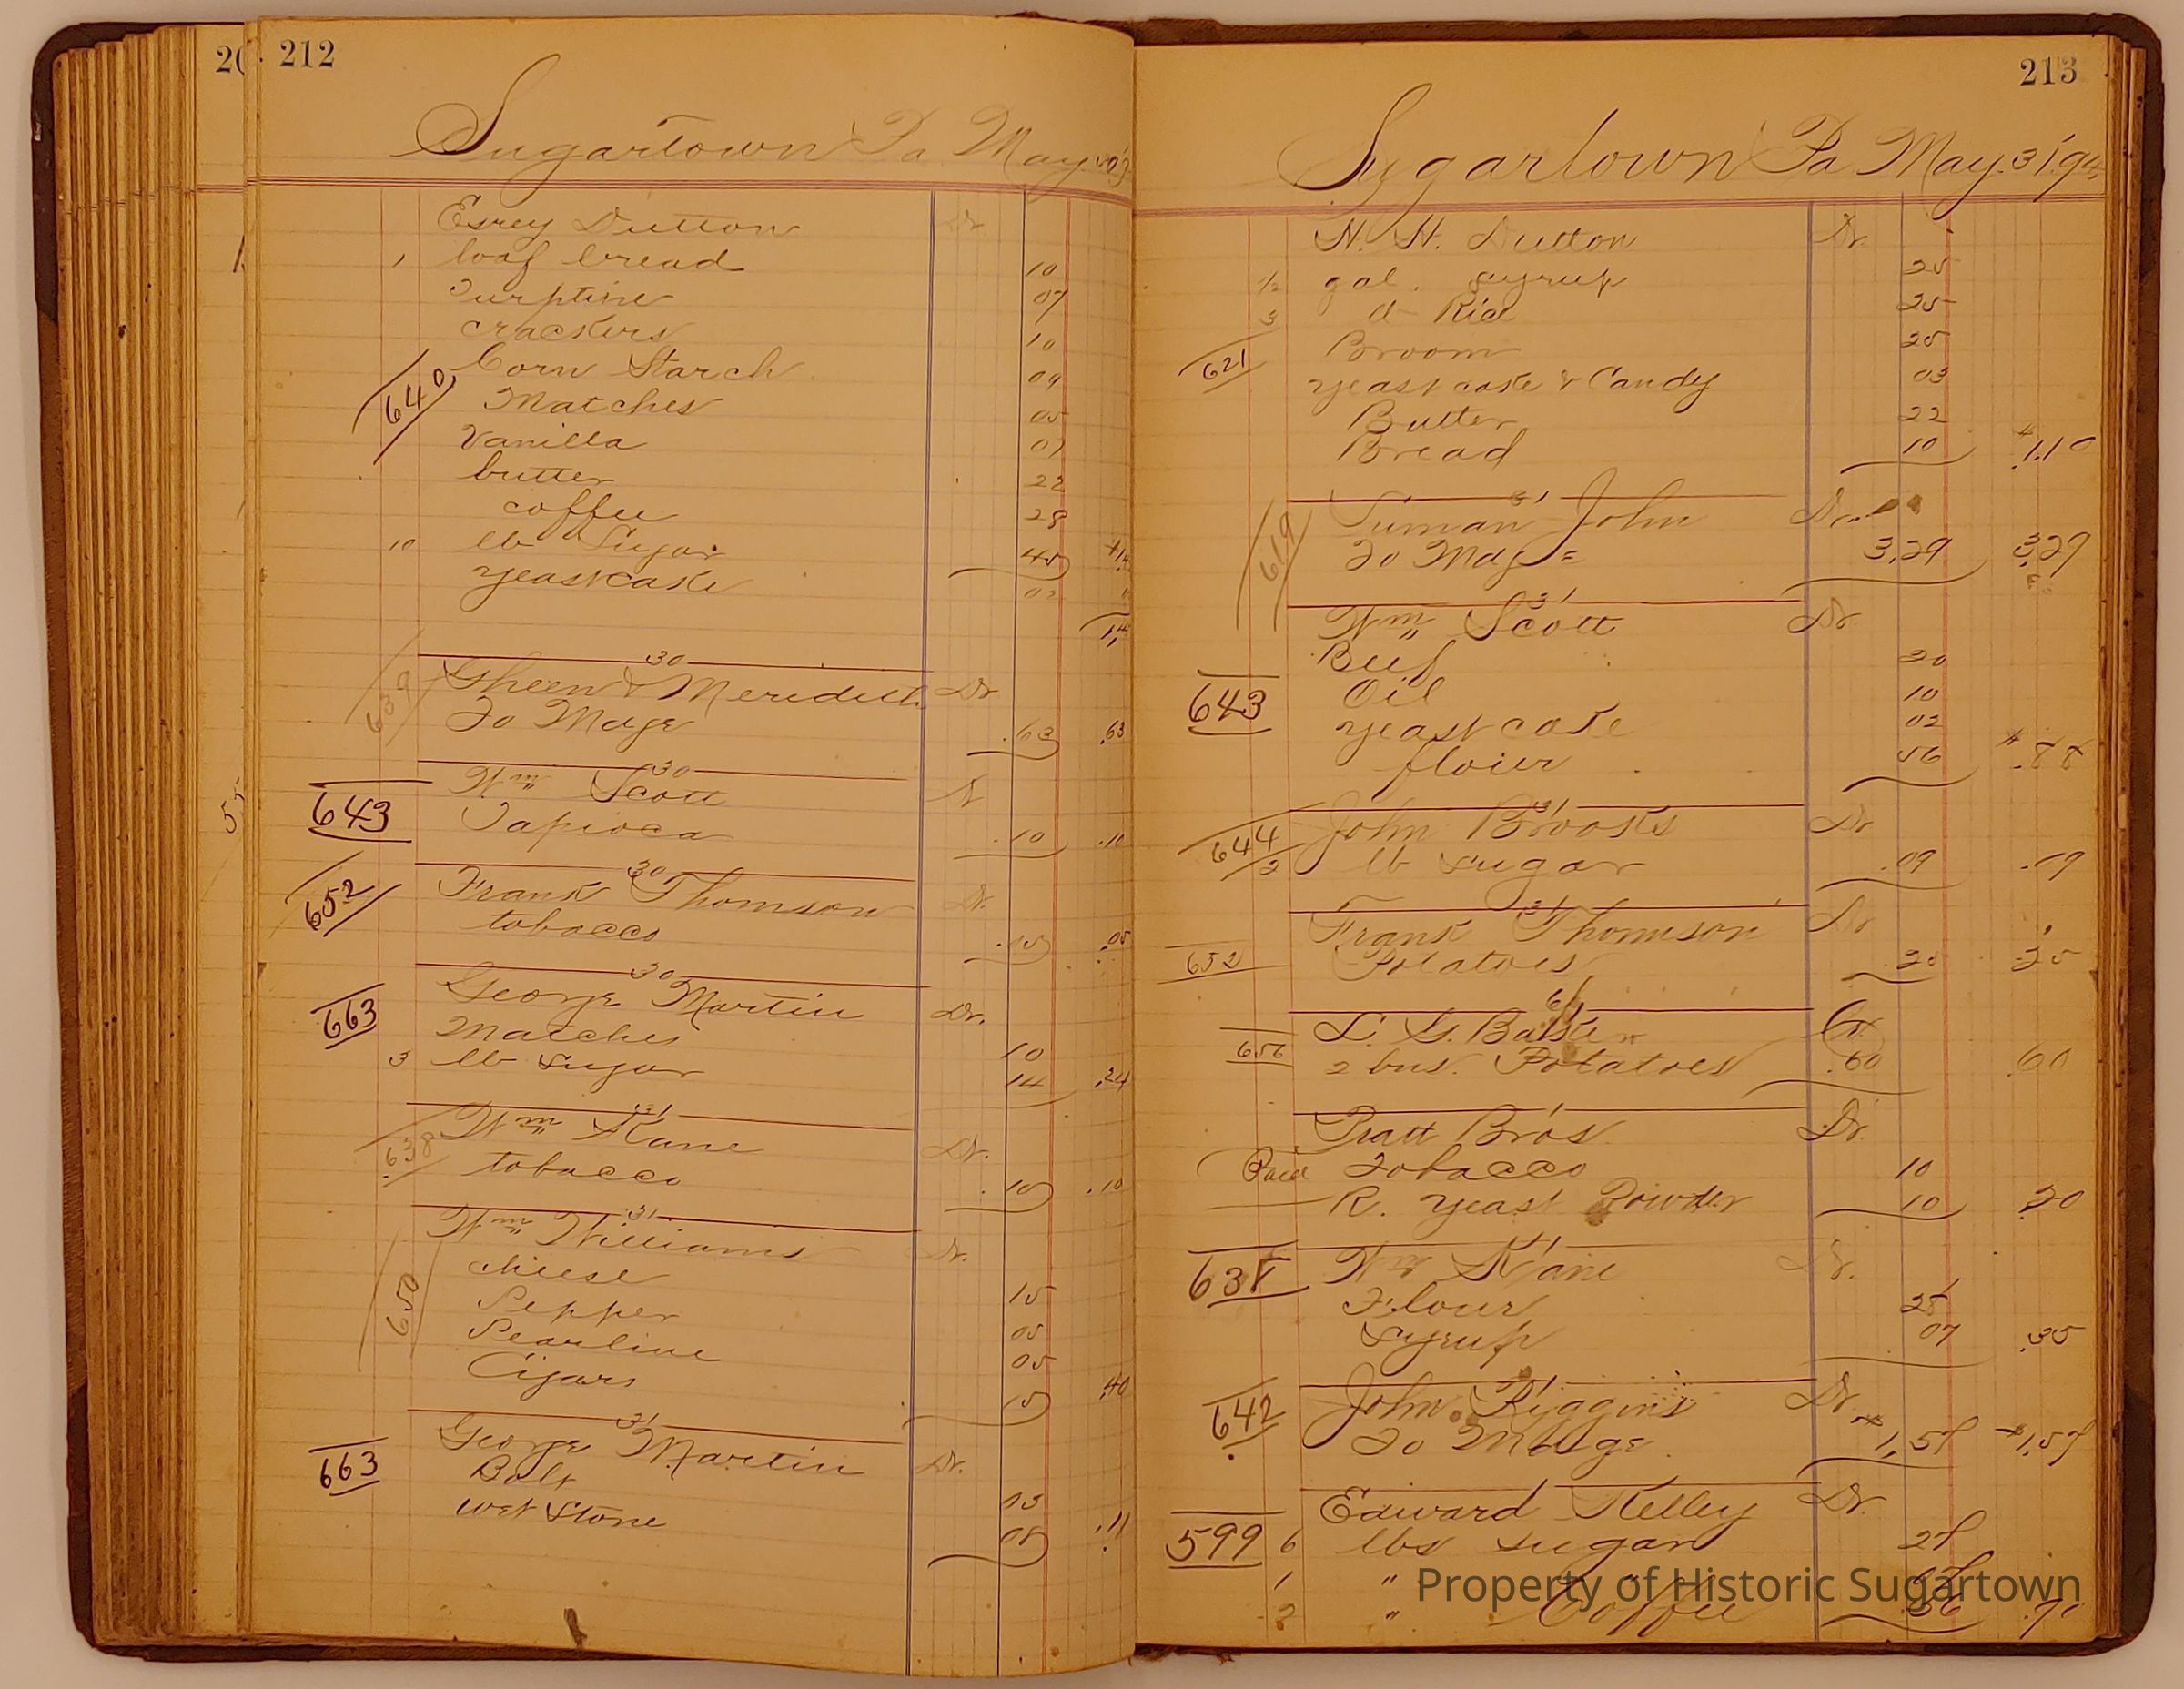 212
Sugartown Pa May 30
Esrey Dutton Dr
1 loaf bread 10
Turptine 07
crackers 10
640 Corn Starch 09
Matches 05
Vanilla
butter 22
coffee 28
10 lb Sugar 45
yeastcake 02
30
639 Gheen & Meredith Dr
To Mdge .63 .63
30
Wm Scott
643 Tapioca .10 .10
30
652 Frank Thomson Dr.
tobacco .05
30
George Martin Dr.
663 Matches 10
3 lb sugar 14 .24
31
Wm Kane Dr.
638 tobacco .10 .10
31
Wm Williams Dr.
cheese 15
Pepper 05
650 Pearline 05
Cigars 15 .40
31
George Martin Dr.
663 Bolt 03
wet Stone 08 .11
213
Sugartown Pa May 31, 94
N. H. Dutton Dr.
1/2 gal. syrup 25
3 Rice 25
621 Broom 25
yeast cake & Candy 03
Butter 22
Bread 10 1.10
31
Tuman John Dr.
619 To Mdge 3.29 3.29
31
Wm Scott Dr
Beef 20
643 Oil 10
yeast cake 02
flour 56 .88
31
644 John Brooks Dr
2 lb sugar .09 .09
31
Frank Thomson Dr
652 Potatoes
6/1
L. G. Baker Cr
656 2 bus. Potatoes .60 .60
1
Pratt Bros. Dr.
Paid Tobacco 10
R. yeast Powder 10 .20
1
638 Wm Kane Dr.
Flour 28
Syrup 07 .35
1
John Riggins Dr.
642 To Mdge 1.58 1.58
Edward Kelley Dr.
599 6 lbs sugar 28
1 " "
2 " Coffee 56
Property of Historic Sugartown